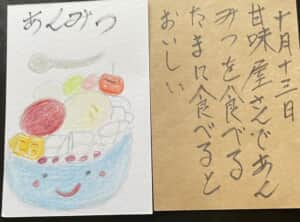 あんみつ
十月十三日
甘味屋さんであん
みつを食べる
たまに食べると
おいしい